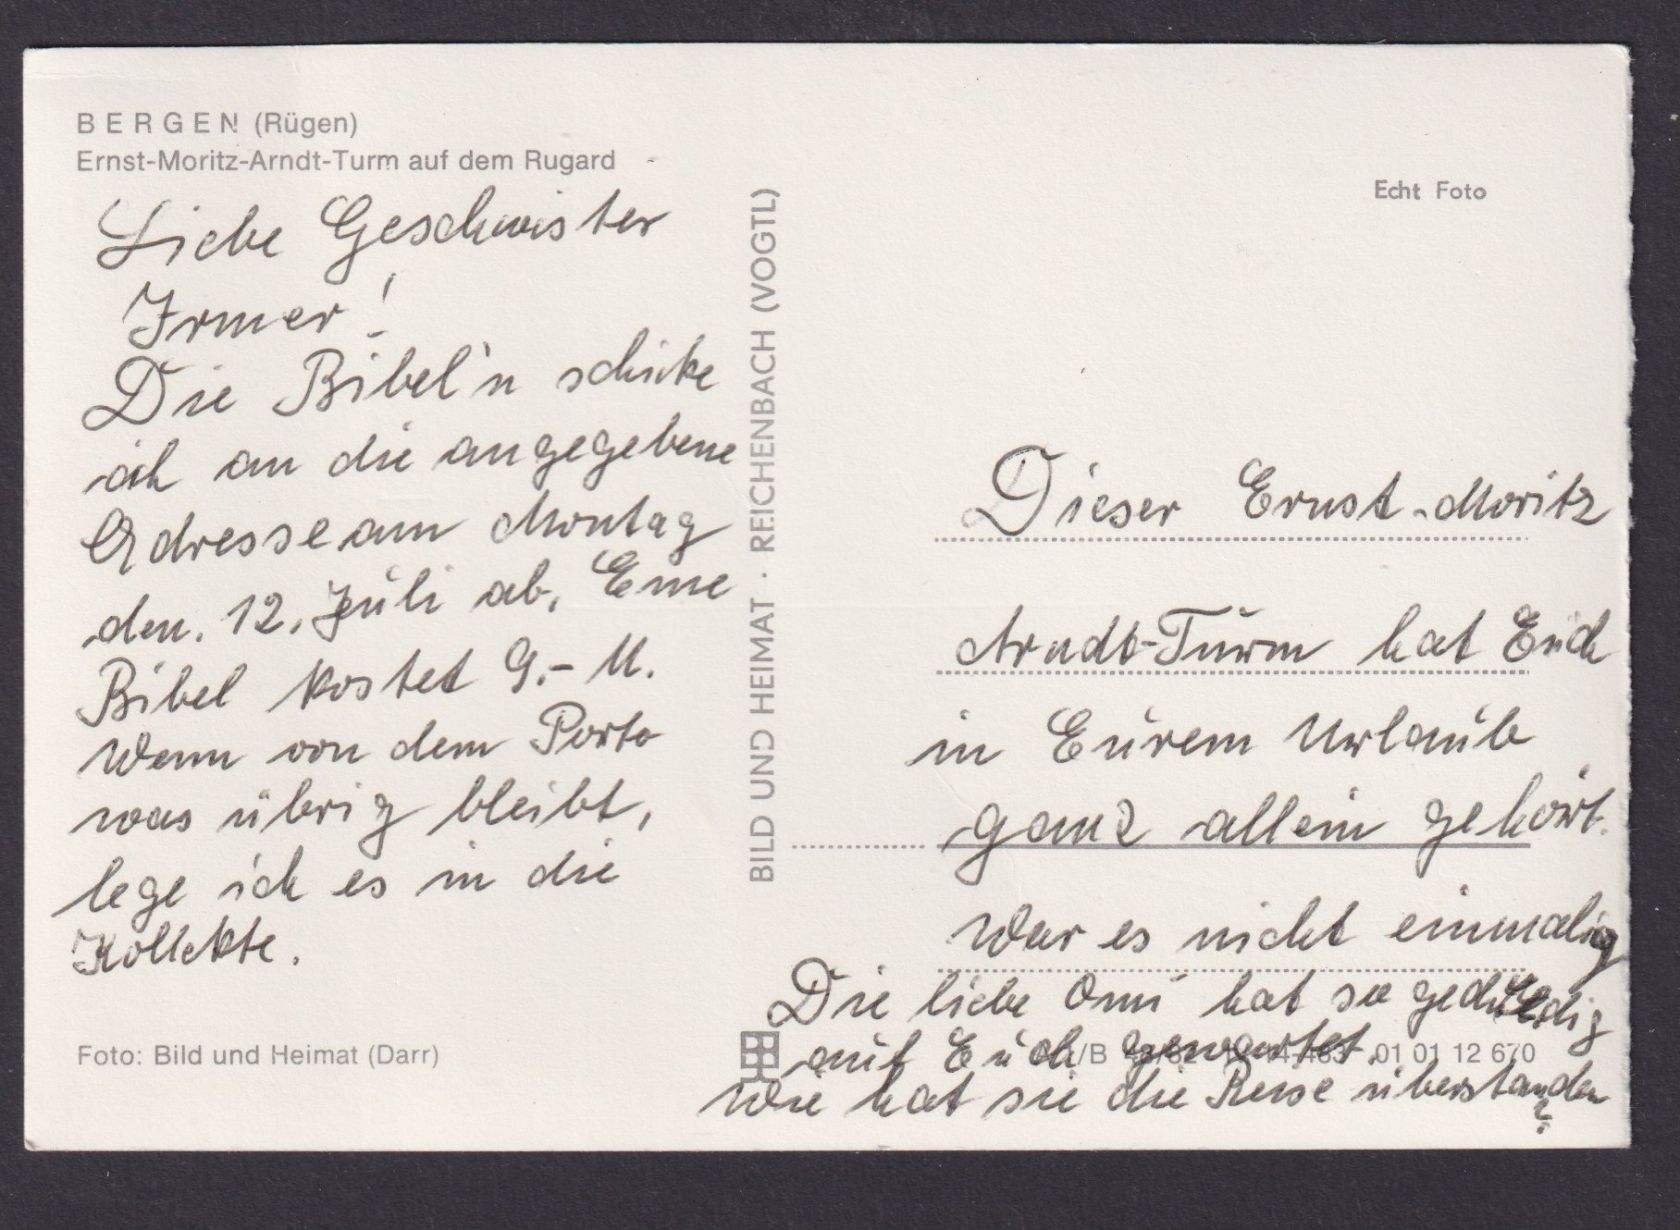 BERGEN (Rügen)
Ernst-Moritz-Arndt-Turm auf dem Rugard
Liebe Geschwister
Irmer!
Die Bibel'n schicke
ich an die angegebene
Adresse am Montag
den. 12. Juli ab. Eine
Bibel kostet 9.- M.
Wenn von dem Porto
was übrig bleibt,
lege ich es in die
Kollekte.
Foto: Bild und Heimat (Darr)
BILD UND HEIMAT · REICHENBACH (VOGTL)
Echt Foto
Dieser Ernst-Moritz
Arndt-Turm hat Euch
in Eurem Urlaub
ganz allein gehört.
War es nicht einmalig
Die liebe Omi hat so geduldig
auf Euch gewartet.
01 01 12 670
Wie hat sie die Reise überstanden
?